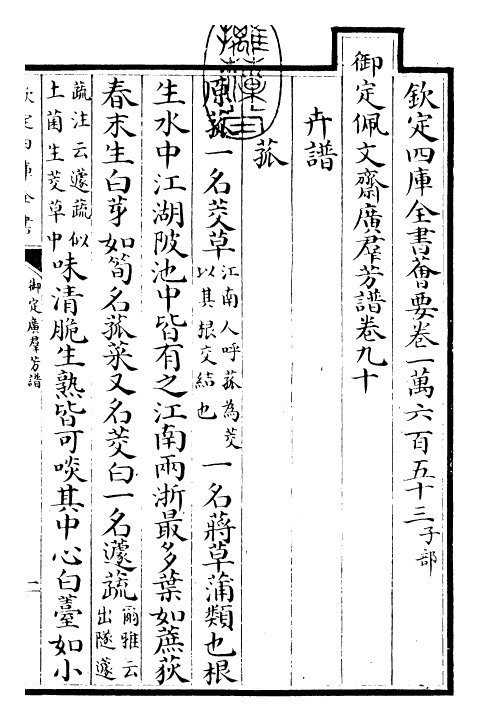 欽定四庫全書薈要卷一萬六百五十三子部
御定佩文齋廣羣芳譜卷九十
卉譜
菰
原菰一名茭草江南人呼菰為茭以其根交結也一名蔣草蒲類也根
生水中江湖陂池中皆有之江南兩浙最多葉如蔗荻
春末生白芽如筍名菰菜又名茭白一名蘧蔬爾雅云出隧蘧
蔬注云蘧蔬似土菌生茭草中味清脆生熟皆可啖其中心白薹如小
欽定四庫全書
御定廣羣芳譜
一